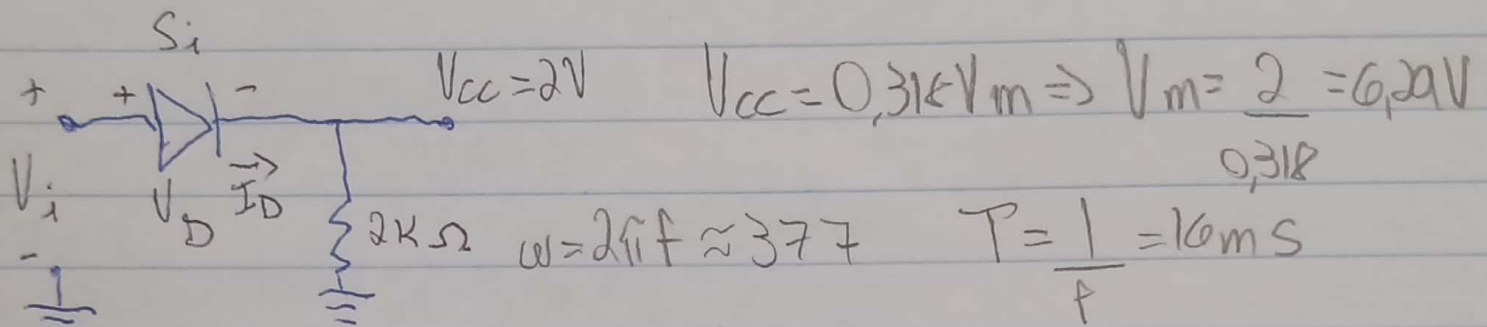 Si
+ + - Vcc = 2V Vcc = 0,318Vm => Vm = 2/0,318 = 6,29V
Vi VD ID
- 2KΩ ω = 2πf ≈ 377 T = 1/f = 16ms